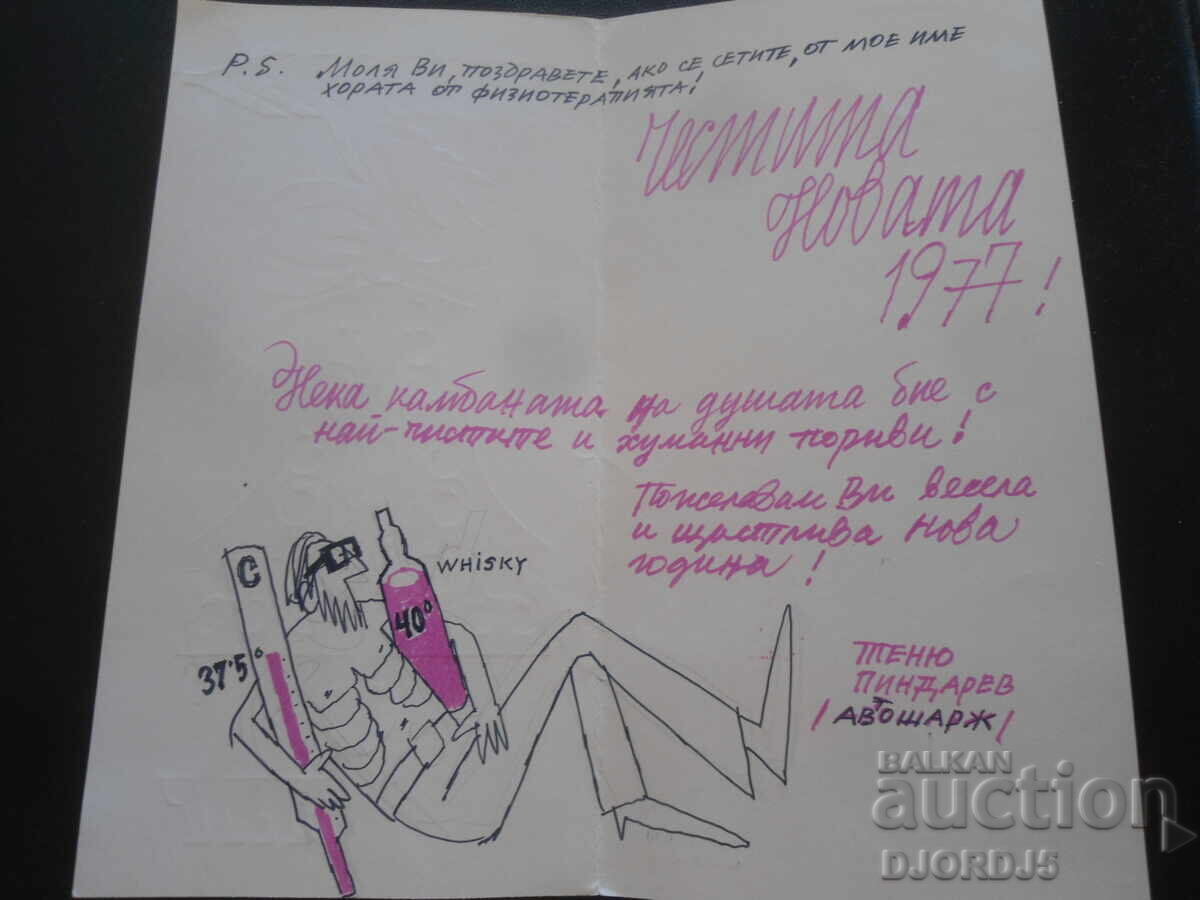 P.S. Моля Ви, поздравете, ако се сетите, от мое име
хората от физиотерапията!
Честита
Новата
1977!
Нека камбаната на душата бие с
най-чистите и хуманни пориви!
Пожелавам Ви весела
и щастлива нова
година!
C
37.5°
40°
WHISKY
ТЕНЮ
ПИНДАРЕВ
/АВТОШАРЖ/
BALKAN
auction
DJORDJ5